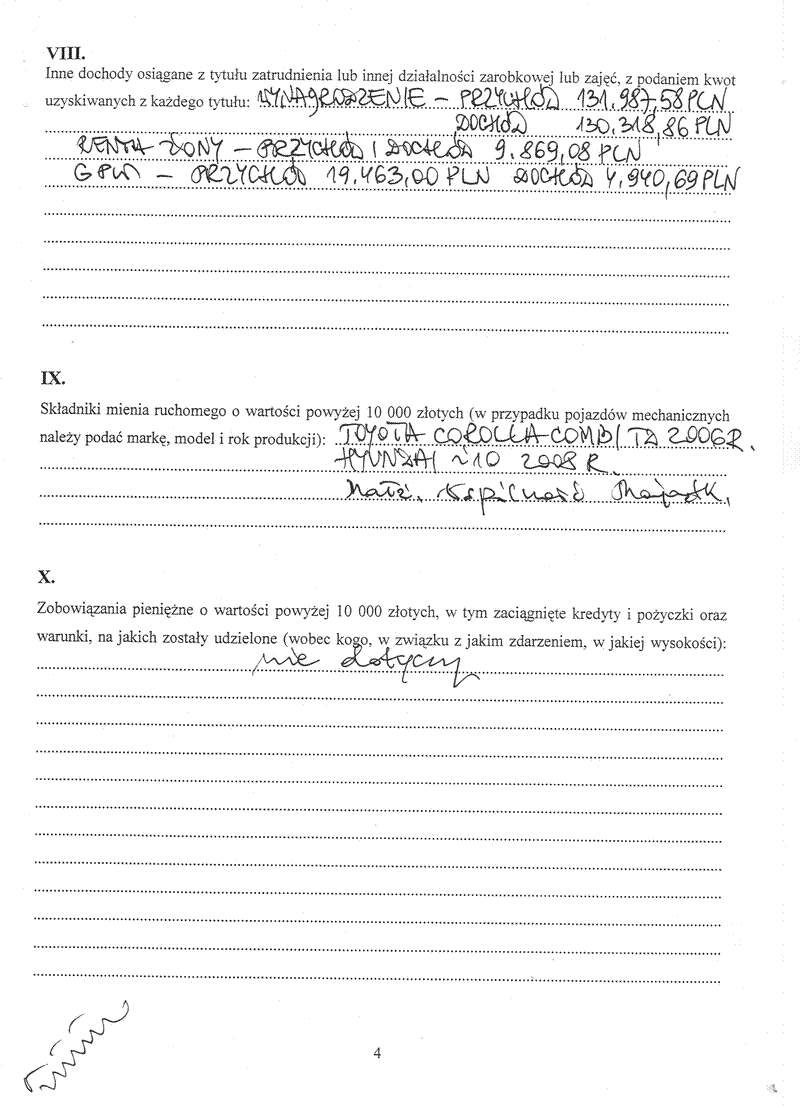 VIII.
Inne dochody osiągane z tytułu zatrudnienia lub innej działalności zarobkowej lub zajęć, z podaniem kwot
uzyskiwanych z każdego tytułu: WYNAGRODZENIE – PRZYCHÓD 131.987,58 PLN
DOCHÓD 130.318,86 PLN
RENTA ŻONY – PRZYCHÓD I DOCHÓD 9.869,08 PLN
GPW – PRZYCHÓD 19.463,00 PLN DOCHÓD 4.940,69 PLN
IX.
Składniki mienia ruchomego o wartości powyżej 10 000 złotych (w przypadku pojazdów mechanicznych
należy podać markę, model i rok produkcji): TOYOTA COROLLA COMBI TD 2006 R.
HYUNDAI i10 2008 R.
Małż. Wspólność Majątk.
X.
Zobowiązania pieniężne o wartości powyżej 10 000 złotych, w tym zaciągnięte kredyty i pożyczki oraz
warunki, na jakich zostały udzielone (wobec kogo, w związku z jakim zdarzeniem, w jakiej wysokości):
nie dotyczy
4